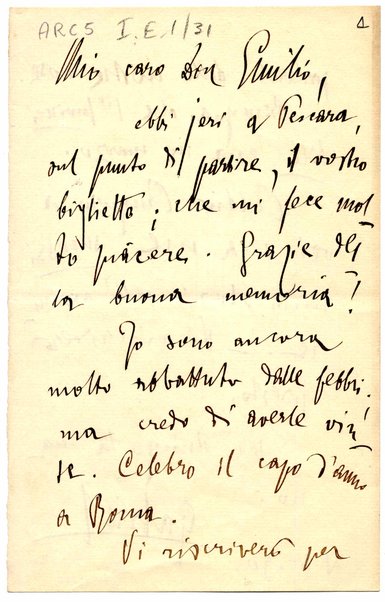 ARC5 I.E.1/31
1
Mio caro Don Emilio,
ebbi jeri a Pescara,
sul punto di partire, il vostro
biglietto; che mi fece mol
to piacere. Grazie del
la buona memoria!
Io sono ancora
molto abbattuto dalle febbri.
ma credo di averle vin
te. Celebro il capo d'anno
a Roma.
Vi riscriverò per